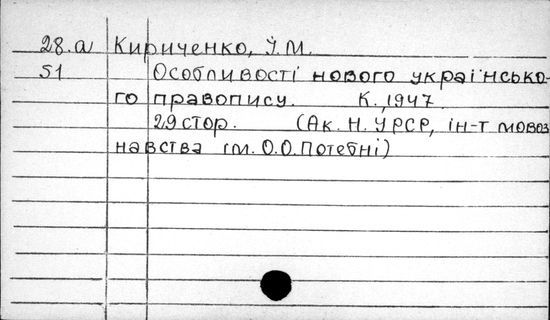 28.а Кириченко, І.М.
51 Особливості нового українсько-
го правопису. К., 1947
29 стор. (Ак. Н. УРСР, ін-т мовоз
навства ім. О.О.Потебні)